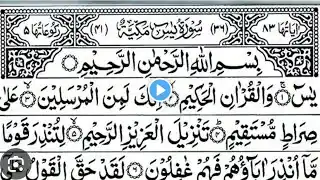 اٰيَاتُهَا ٨٣ (٣٦) سُوْرَةُ يٰسٓ مَكِّيَّةٌ (٤١) رُكُوْعَاتُهَا ٥
بِسْمِ اللهِ الرَّحْمٰنِ الرَّحِيْمِ
يٰسٓ ۝١ وَالْقُرْاٰنِ الْحَكِيْمِ ۝٢ اِنَّكَ لَمِنَ الْمُرْسَلِيْنَ ۝٣ عَلٰى
صِرَاطٍ مُّسْتَقِيْمٍ ۝٤ تَنْزِيْلَ الْعَزِيْزِ الرَّحِيْمِ ۝٥ لِتُنْذِرَ قَوْمًا
مَّآ اُنْذِرَ اٰبَآؤُهُمْ فَهُمْ غٰفِلُوْنَ ۝٦ لَقَدْ حَقَّ الْقَوْلُ